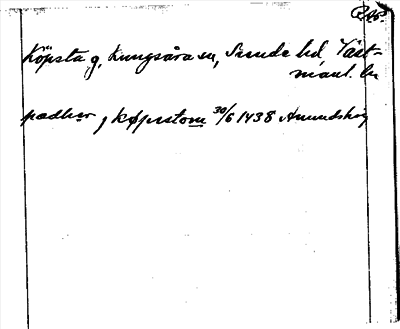 Köpsta g, Kungsåra sn, Siende hd, Väst-
manl. län
padhar j køpstom 30/6 1438 Anundshög